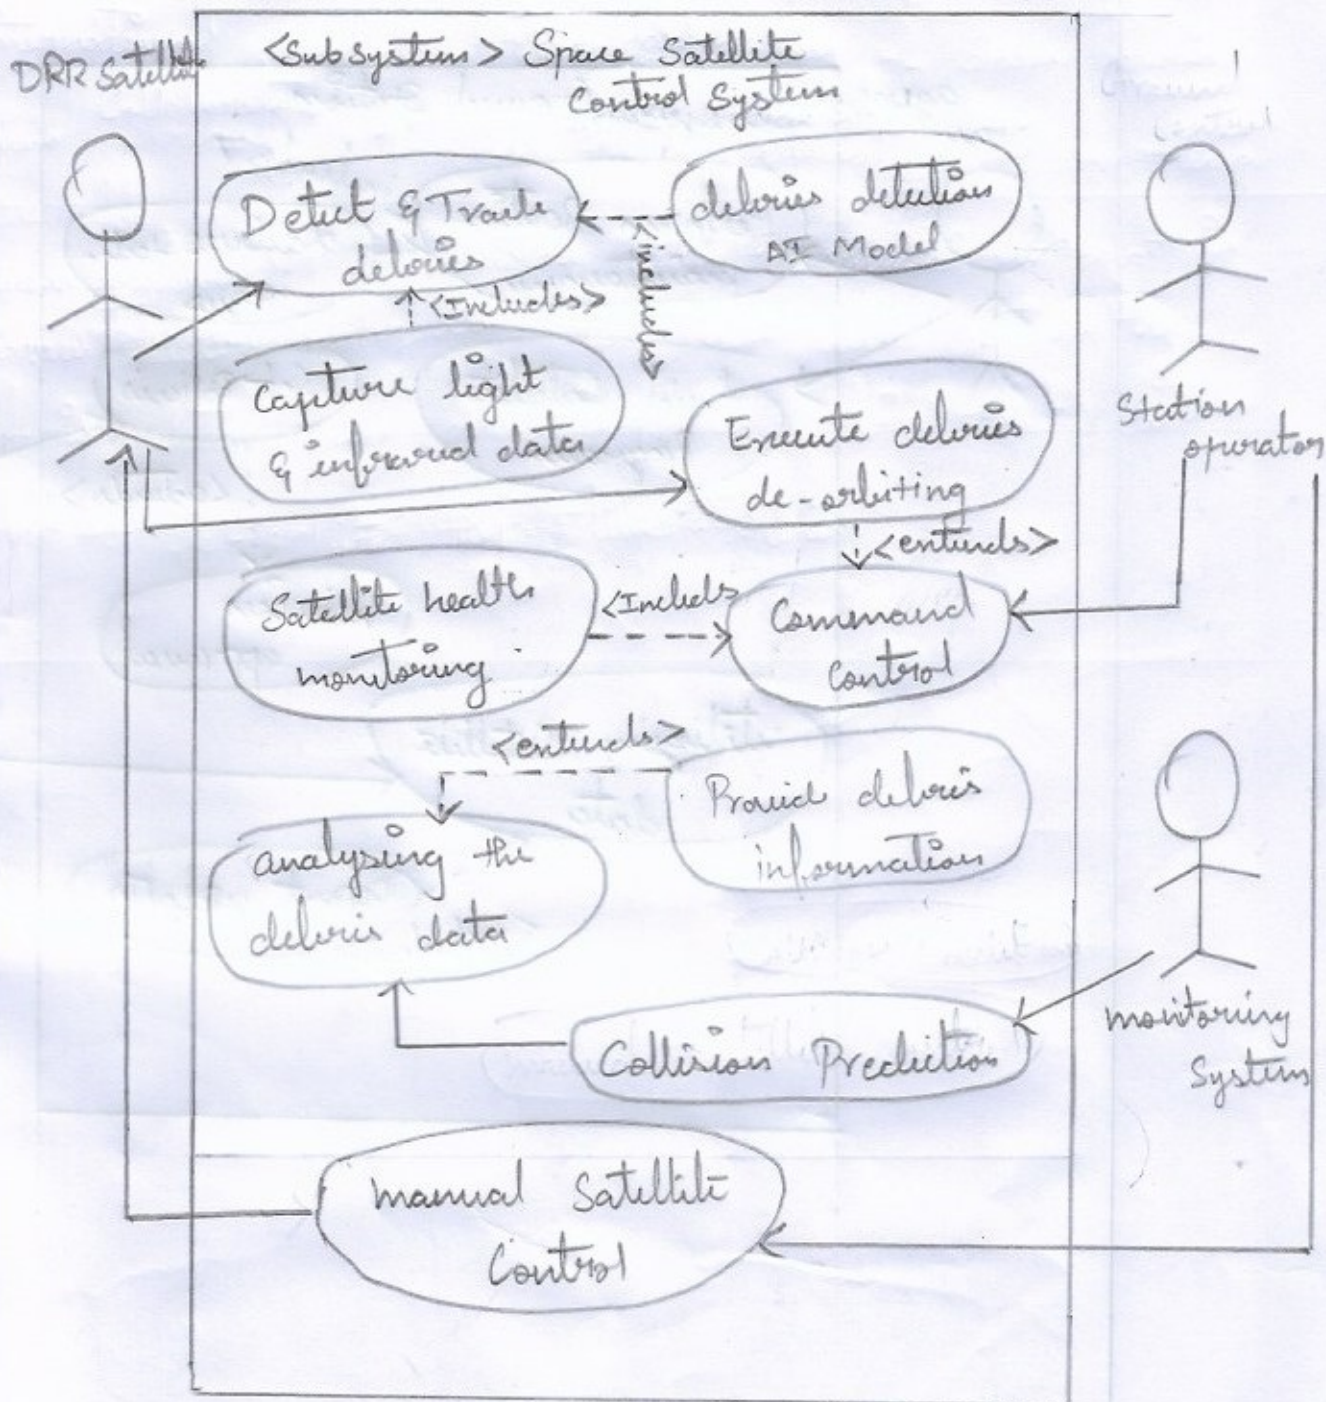 DRR Satellite
<Subsystem> Space Satellite
Control System
Detect & Track
debries
debries detection
AI Model
<includes>
<Includes>
Capture light
& infrared data
Execute debries
de-orbiting
Station
operator
<extends>
Satellite health
monitoring
<Includs
Command
Control
<extends>
Provid debris
information
analysing the
debris data
Collision Prediction
monitoring
System
manual Satellite
Control